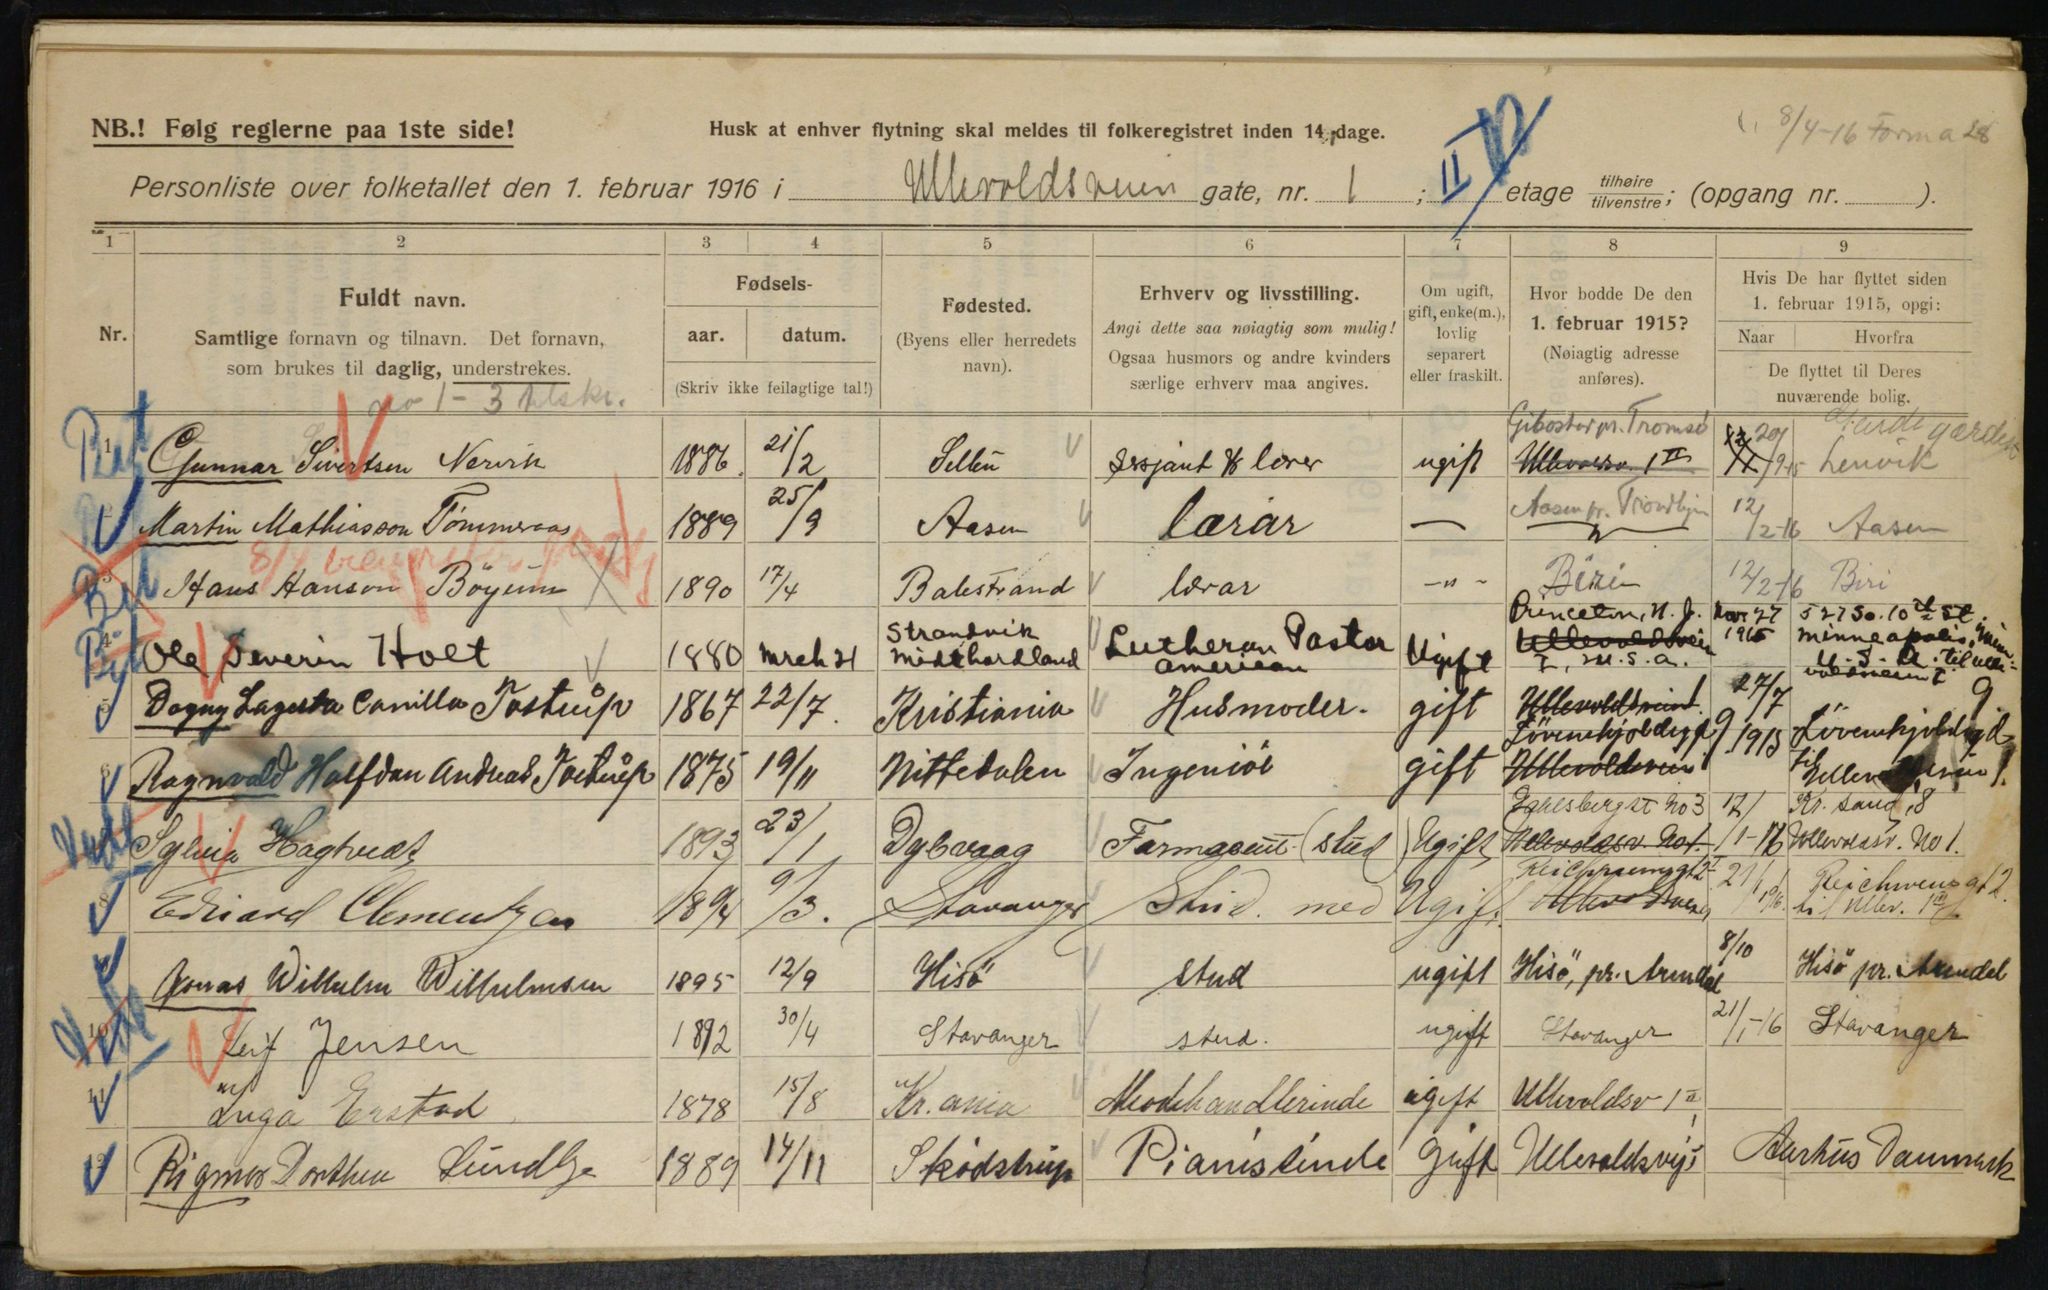 8/4-16 Forma 28
NB.! Følg reglerne paa 1ste side!
Husk at enhver flytning skal meldes til folkeregistret inden 14 dage.
Personliste over folketallet den 1. februar 1916 i Ullevoldsveien gate, nr. 1 ; II etage tilhøire/tilvenstre; (opgang nr. ).
1 2 3 4 5 6 7 8 9
Nr.
Fuldt navn.
Samtlige fornavn og tilnavn. Det fornavn,
som brukes til daglig, understrekes.
Fødsels-
aar. datum.
(Skriv ikke feilagtige tal!)
Fødested.
(Byens eller herredets
navn).
Erhverv og livsstilling.
Angi dette saa nøiagtig som mulig!
Ogsaa husmors og andre kvinders
særlige erhverv maa angives.
Om ugift,
gift, enke(m.),
lovlig
separert
eller fraskilt.
Hvor bodde De den
1. februar 1915?
(Nøiagtig adresse
anføres).
Hvis De har flyttet siden
1. februar 1915, opgi:
Naar Hvorfra
De flyttet til Deres
nuværende bolig.
no 1-3 tilskr.
Gibostar pr. Tromsø
1 Gunnar Sivertsen Nervik 1886 21/2 Sellen sersjant & lærer ugift Ullevoldsv. 1 II Lenvik
2 Martin Mathiasson Tømmeraas 1889 25/9 Aasen lærar — Aasen pr. Trondhjem 12/2-16 Aasen
3 Hans Hanson Böyum 1890 17/4 Balestrand lærar -"- Biri 12/2-16 Biri
4 Ole Severin Holt 1880 Mrch 21 Strandvik Midthordland Lutheran Pastor American Ugift Princeton, N. J. Ullevoldsveien 1, U.S.A. Nov 27 1915 527 So. 10th St. Minneapolis, Minn. U.S.A. til Ullevoldsveien 1
5 Dagny Lagerta Camilla Tostrup 1867 22/7 Kristiania Husmoder. gift Ullevoldsveien 1. Lövenskjoldsgt 9 27/7 1915 Lövenskjoldsgd 9
6 Ragnvald Halfdan Andreas Tostrup 1875 19/11 Nittedalen Ingeniör gift Ullevoldsveien til Ullevoldsveien 1.
7 Sylvia Hagtvedt 1893 23/1 Dybvaag Farmaceut (stud) Ugift No 3 Ullevoldsv. No 1. 12/1-16 Kr. sand, 8 Ullevoldsv. No 1.
8 Edvard Clementzen 1894 9/3. Stavanger Stud. med Ugift. Reichweinsgt 2 II Ullevoldsveien 21/1 1916 Reichweinsgt 2. til Ullev. 1 III
9 Jonas Wilhelm Wilhelmsen 1895 12/9 Hisö stud ugift Hisö, pr. Arendal 8/10 Hisö pr. Arendal
10 Leif Jensen 1892 30/4 Stavanger stud. ugift Stavanger 21/1-16 Stavanger
11 Inga Enstad 1878 15/8 Kr.ania Modehandlerinde ugift Ullevoldsv 1 II
12 Rigmor Dorthea Lundbye 1889 14/11 Sködstrup Pianistinde Gift Ullevoldsvej 1 Aarhus Danmark